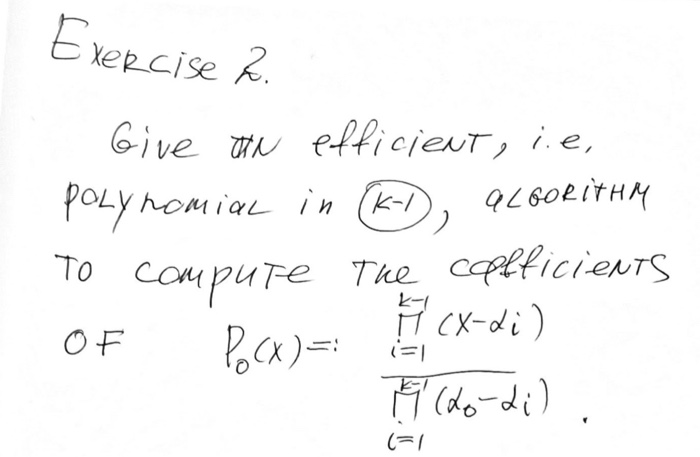 Exercise 2.
Give an efficient, i.e,
polynomial in (k-1), algorithm
to compute the coefficients
of P₀(x)=: \frac{\prod_{i=1}^{k-1} (x-αi)}{\prod_{i=1}^{k-1} (α₀-αi)} .